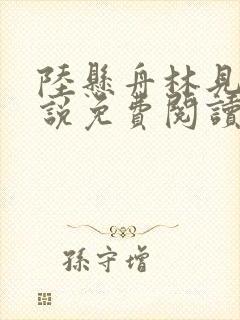 陸懸舟林見
說免費閱讀
孫守增